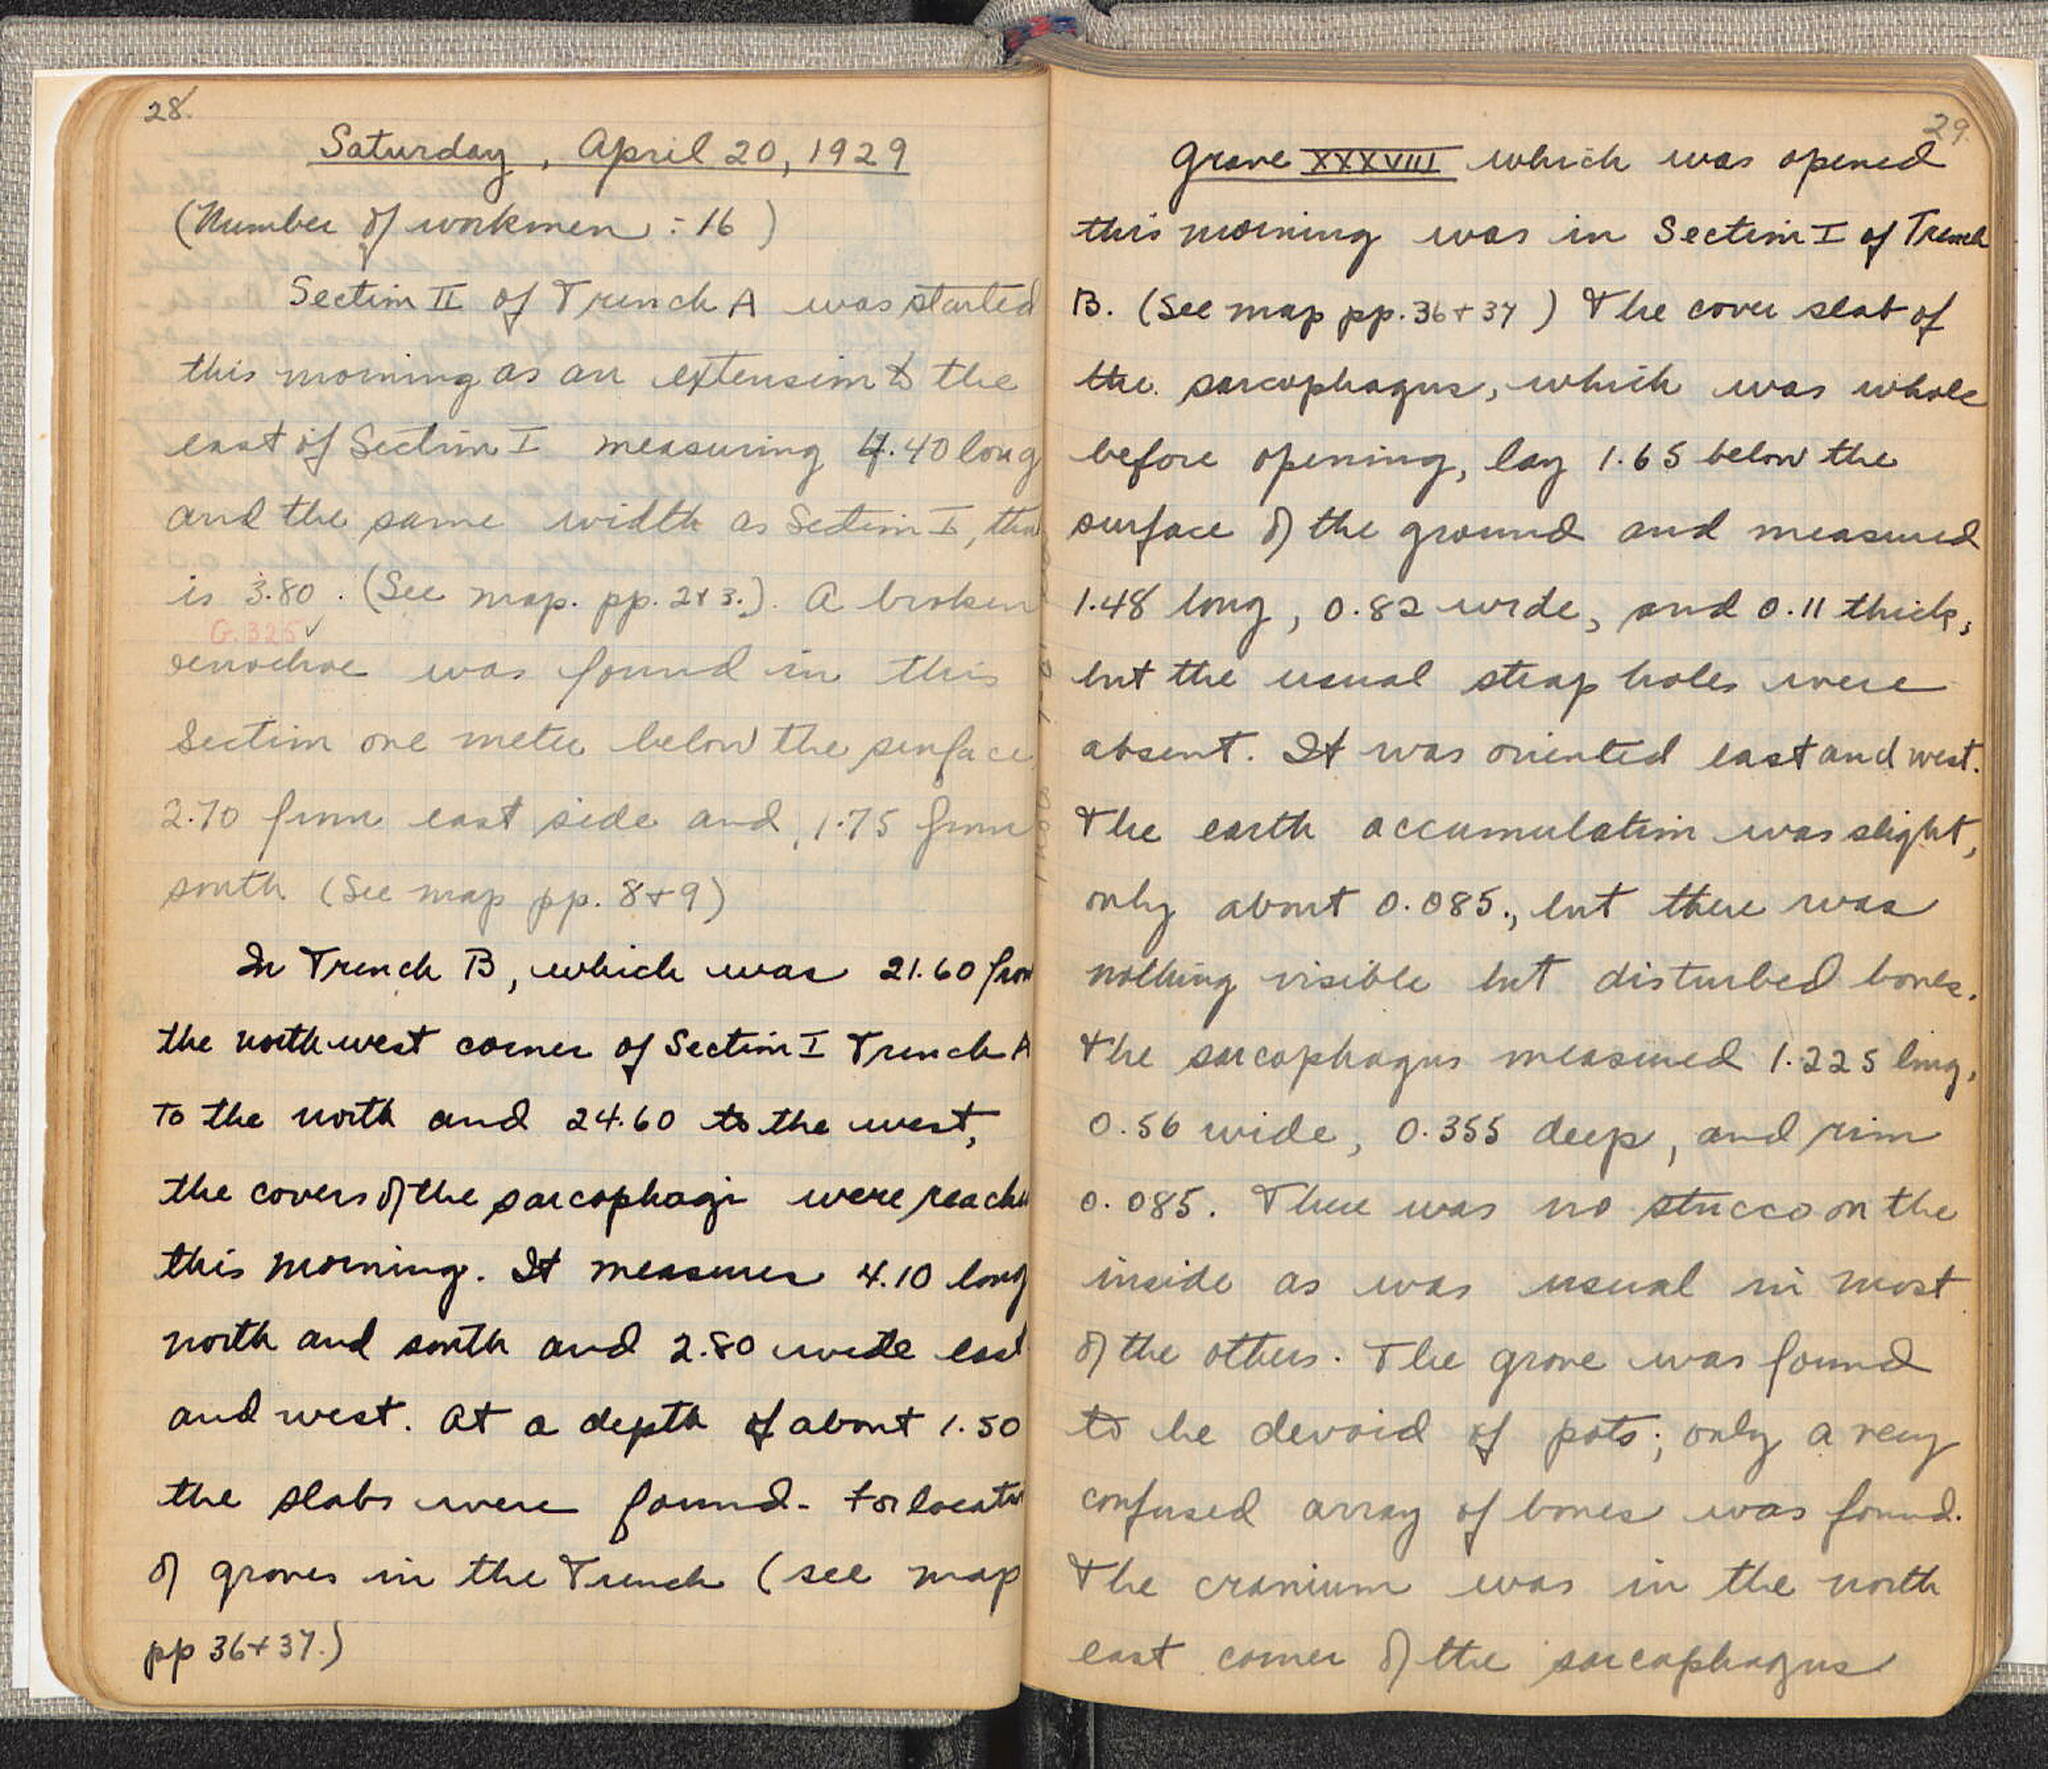 28.
Saturday, April 20, 1929
(Number of workmen :- 16 )
Section II of Trench A was started
this morning as an extension to the
east of Section I measuring 4.40 long
and the same width as Section I, that
is 3.80. (See map. pp. 2+3.). A broken
G. 325 ✓
oenochoe was found in this
Section one meter below the surface
2.70 from east side and, 1.75 from
south (See map pp. 8+9)
In Trench B, which was 21.60 from
the north west corner of Section I Trench A
to the north and 24.60 to the west,
the covers of the sarcophagi were reached
this morning. It measures 4.10 long
north and south and 2.80 wide east
and west. At a depth of about 1.50
the slabs were found. For location
of graves in the Trench (see map
pp 36+37.)
29.
Grave XXXVIII which was opened
this morning was in Section I of Trench
B. (See map pp. 36+37 ) The cover slab of
the sarcophagus, which was whole
before opening, lay 1.65 below the
surface of the ground and measured
1.48 long, 0.82 wide, and 0.11 thick,
but the usual strap holes were
absent. It was oriented east and west.
The earth accumulation was slight,
only about 0.085., but there was
nothing visible but disturbed bones.
The sarcophagus measured 1.225 long,
0.56 wide, 0.355 deep, and rim
0.085. There was no stucco on the
inside as was usual in most
of the others. The grave was found
to be devoid of pots; only a very
confused array of bones was found.
The cranium was in the north
east corner of the sarcophagus